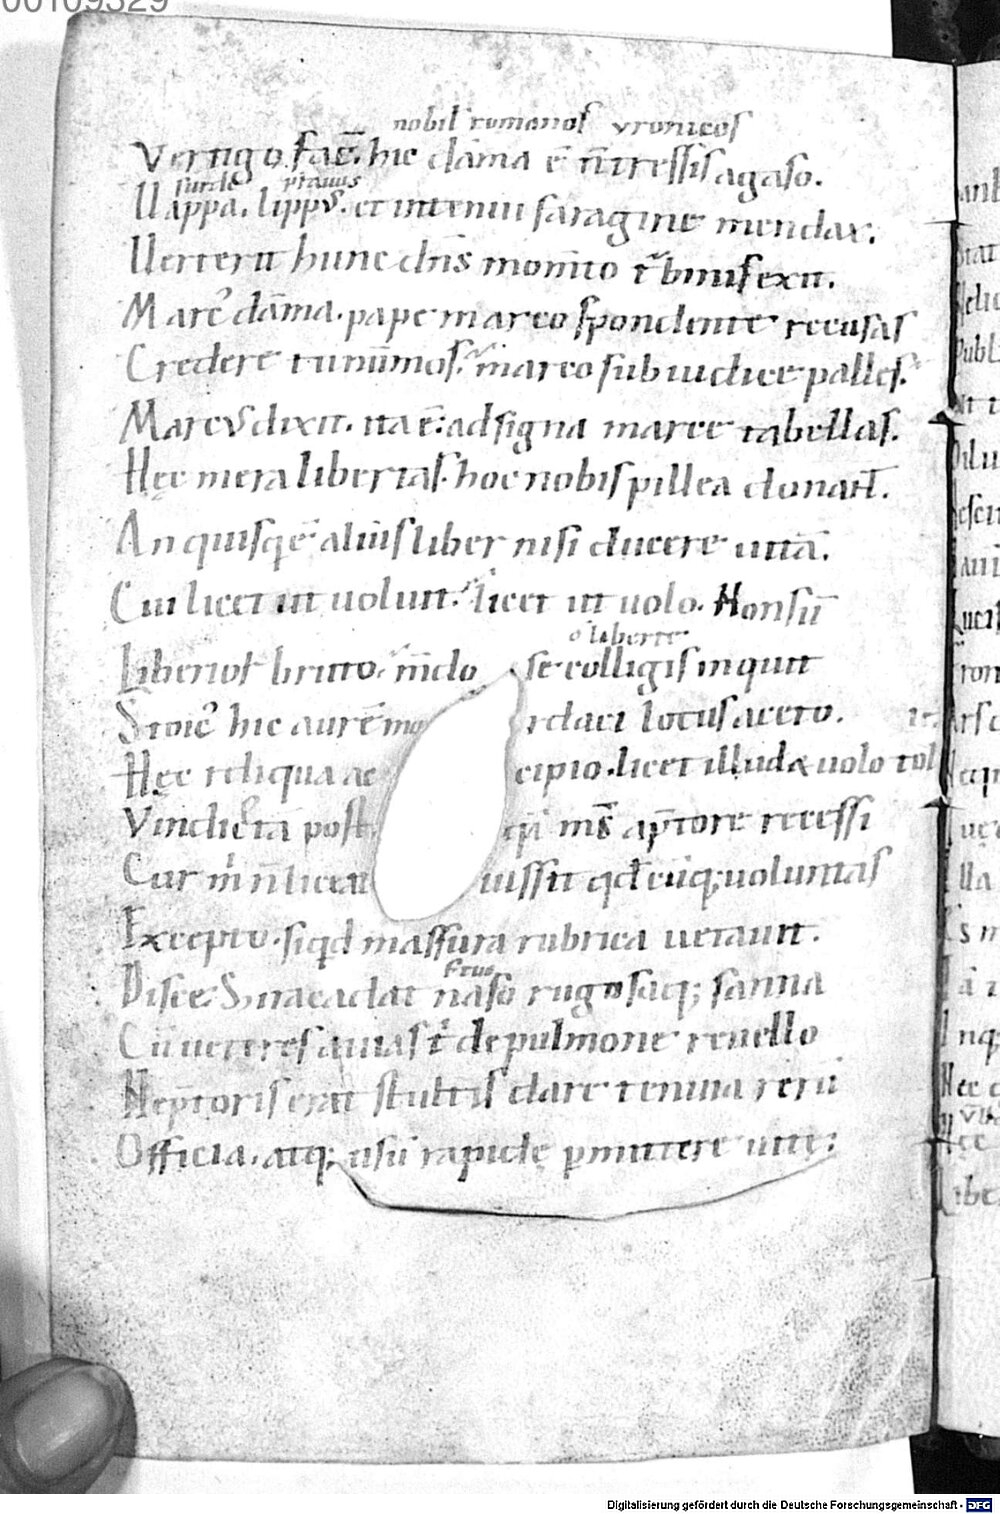 00109329
nobil romanos yronicos
Vertigo facē. hic dāma ē n̄ tressis agaso.
surde prauus
Uappa. lippus. et in tenui faragine mendax;
Uerterit hunc dn̄s momīto t̄binis exit.
Marc' dāma. pape marco spondente recusas
Credere tu nūmos? marco sub iudice palles.
Marcus dixit. ita ē: adsigna marce tabellas.
Hęc mera libertas. hoc nobis pillea donant.
An quisqē alius liber nisi ducere uitā.
Cui licet ut uolun̄t. licet ut uolo. Non sū
o liberte
Liberior bruto. m̄do se colligis inquit
Stoic' hic aurē mo rdaci lotus aceto.
Hęc reliqua ac cipio. licet illud & uolo tol
Vindicta post q̄ m̄s a p̄tore recessi
Cur m̄ n̄ liceat iussit qd̄ cūq; uoluntas
Excepto. siqd massura rubrica uetauit.
Disce. S; ira cadat naso rugosaq; sanna
Cū ueteres auias t̄ de pulmone reuello
Nep̄toris erat stultis dare tenuia rerū
Officia. atq; usū rapidę p̄mittere uitę;
Digitalisierung gefördert durch die Deutsche Forschungsgemeinschaft - DFG